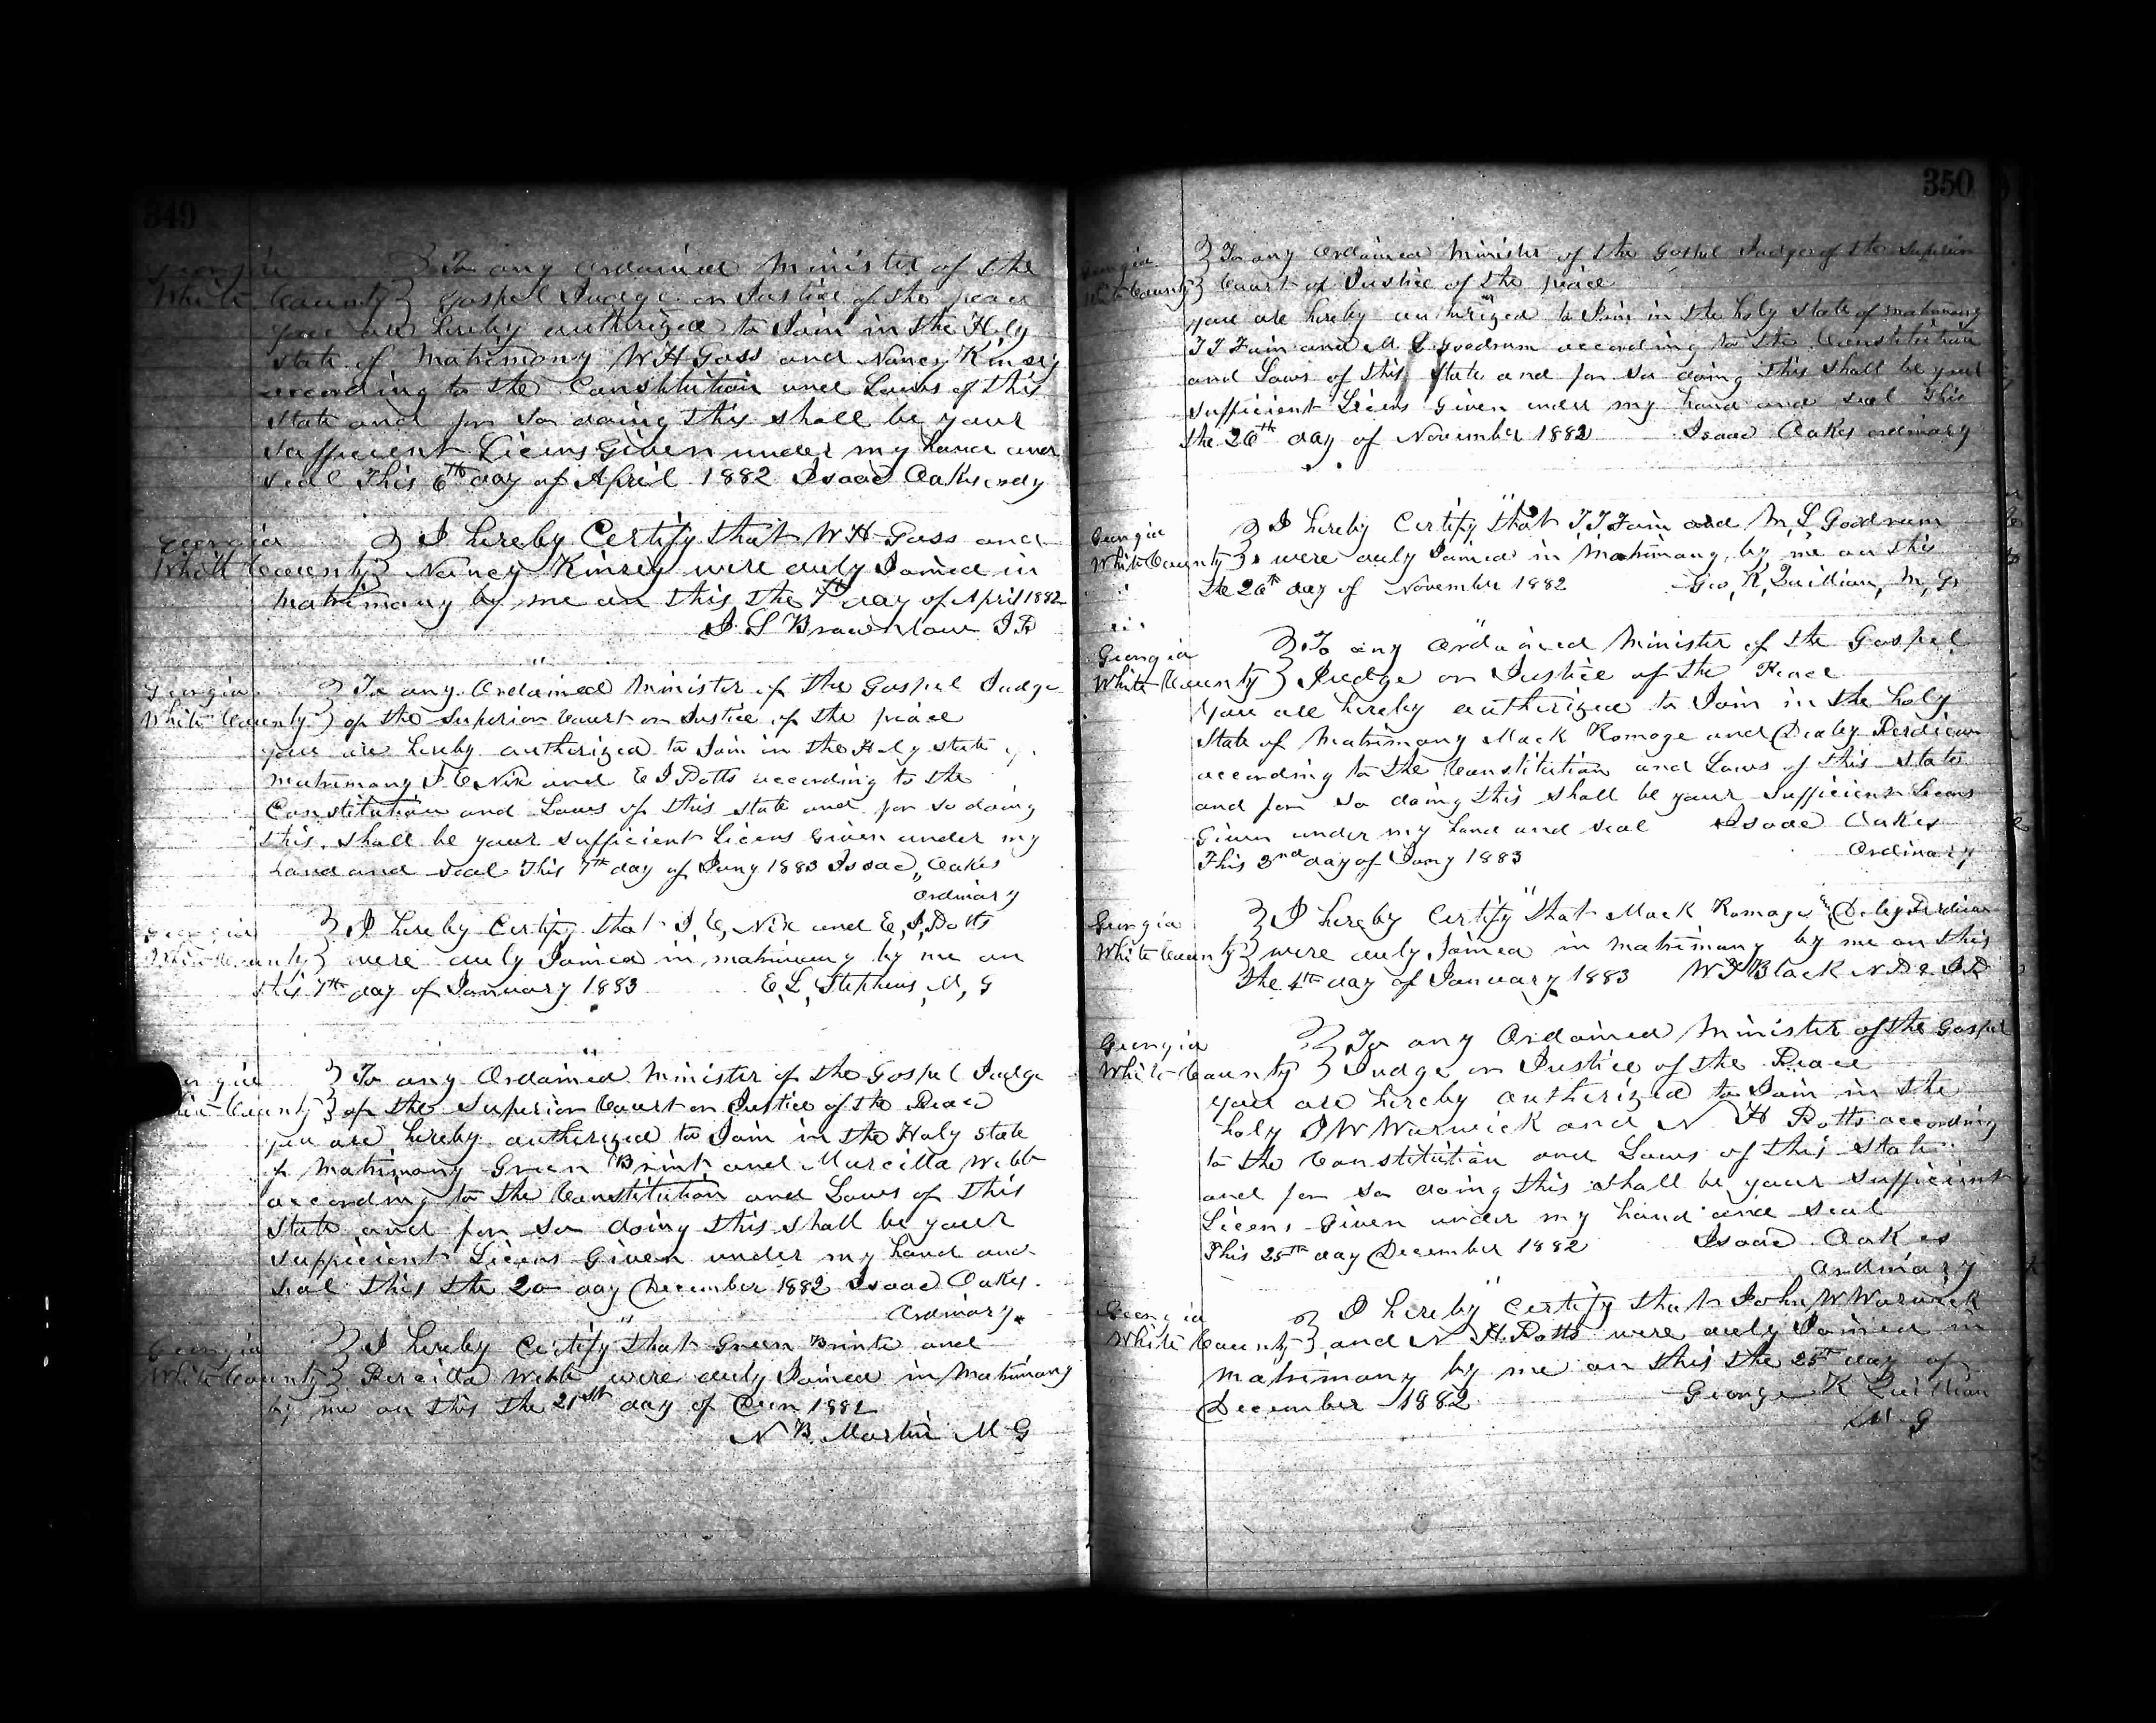 349
Georgia } To any Ordained Minister of the
White County } Gospel Judge or Justice of the peace
you are hereby authorized to Join in the Holy
state of Matrimony W H Goss and Nancy Kinsey
according to the Constitution and Laws of this
state and for so doing this shall be your
sufficient Licens Given under my hand and
seal This 6th day of April 1882 Isaac Oakes ordy
Georgia } I hereby Certify that W H Goss and
White County } Nancy Kinsey were duly Joined in
Matrimony by me on this the 7th day of April 1882
J. S Brownlow J P
Georgia } To any Ordained Minister of the Gospel Judge
White County } of the Superior Court or Justice of the peace
you are hereby authorized to Join in the Holy state of
matrimony J E Nix and E J Potts according to the
Constitution and Laws of this state and for so doing
this shall be your sufficient Licens Given under my
hand and seal This 7th day of Jany 1883 Isaac Oakes
Ordinary
Georgia } I hereby Certify that J, E, Nix and E, J, Potts
White County } were duly Joined in matrimony by me on
this 7th day of January 1883 E, L, Stephens, M, G
Georgia } To any Ordained Minister of the Gospel Judge
White County } of the Superior Court or Justice of the Peace
you are hereby authorized to Join in the Holy state
of Matrimony Green Brink and Marcilla Webb
according to the Constitution and Laws of this
state and for so doing this shall be your
sufficient Licens Given under my hand and
seal this the 20 day December 1882 Isaac Oakes.
Ordinary.
Georgia } I hereby Certify that Green and
White County } Percilla Webb were duly Joined in Matrimony
by me on this the 21st day of Decm 1882
N B. Martin M G
350
Georgia } To any Ordained Minister of the Gospel Judge of the Superior
White County } Court of Justice of the peace
you are hereby authorized to Join in the holy state of matrimony
T J Fain and M L Goodrum according to the Constitution
and Laws of this state and for so doing this shall be your
sufficient Licens Given under my hand and seal This
the 26th day of November 1882 Isaac Oakes ordinary
Georgia } I hereby Certify that T J Fain and M, L Goodrum
White County } were duly Joined in Matrimony, by me on this
the 26th day of November 1882 Geo, K, Quillian, M, G,
Georgia } To any Ordained Minister of the Gospel
White County } Judge or Justice of the Peace
You are hereby authorized to Join in the holy
state of Matrimony Mack Romage and
according to the Constitution and Laws of this state
and for so doing this shall be your sufficient Licens
Given under my hand and seal Isaac Oakes
This 3nd day of Jany 1883 Ordinary
Georgia } I hereby Certify that Mack Romage
White County } were duly Joined in matrimony by me on this
the 4th day of January 1883 W F Black N P & J P
Georgia } To any Ordained Minister of the Gospel
White County } Judge or Justice of the Peace
you are hereby authorized to Join in the
holy J W Warwick and N H Potts according
to the Constitution and Laws of this state
and for so doing this shall be your sufficient
Licens Given under my hand and seal
This 25th day December 1882 Isaac Oakes
Ordinary
Georgia } I hereby Certify that John W Warwick
White County } and N H. Potts were duly Joined in
matrimony by me on this the 25th day of
December 1882 George K Quillian
M G